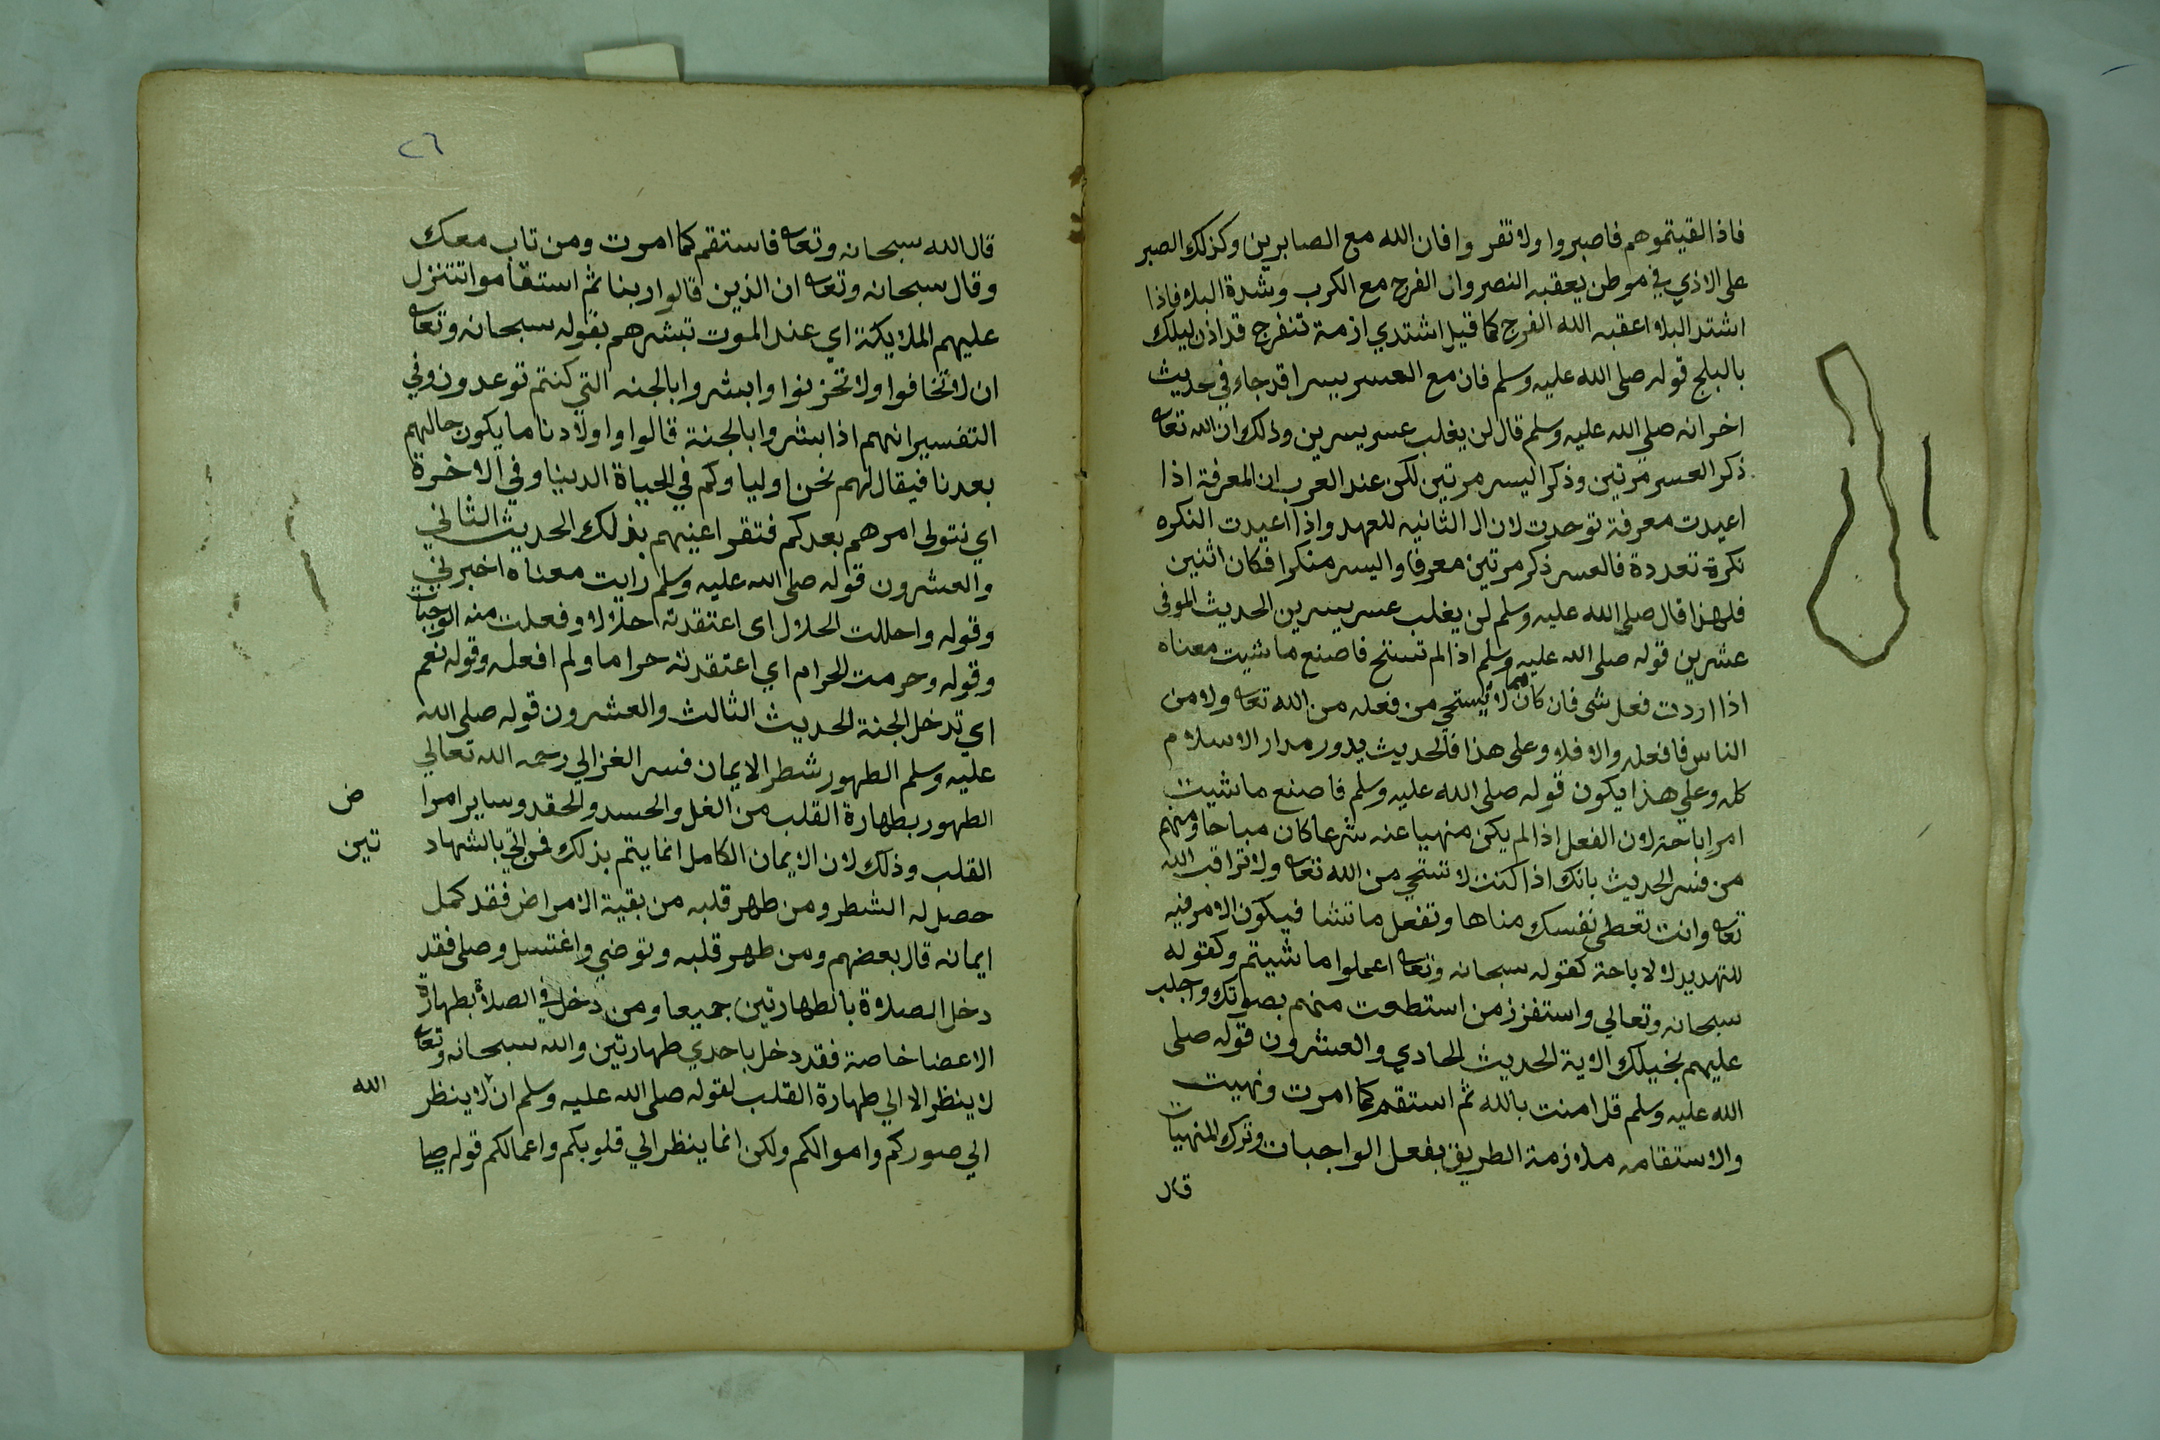 فاذا لقيتموهم فاصبروا ولا تفر وا فان الله مع الصابرين وكذلك الصبر
على الاذي في موطن يعقبه النصر وان الفرج مع الكرب وشدة البلا فاذا
اشتد البلا اعقبه الله الفرج كما قيل اشتدي ازمة تنفرج قد اذن ليلك
بالبلج قوله صلى الله عليه وسلم فان مع العسر يسرا قد جاء في حديث
اخر انه صلي الله عليه وسلم قال لن يغلب عسر يسرين وذلك ان الله تعا
ذكر العسر مرتين وذكر اليسر مرتين لكن عند العرب ان المعرفة اذا
اعيدت معرفة توحدت لان ال الثانيه للعهد واذا اعيدت النكره
نكرة تعددة فالعسر ذكر مرتين معرفا واليسر منكرا فكان اثنين
فلهذا قال صلى الله عليه وسلم لن يغلب عسر يسرين الحديث الموفى
عشرين قوله صلى الله عليه وسلم اذا لم تستح فاصنع ما شيت معناه
اذا اردت فعل شى فان كان مما لا يستحي من فعله من الله تعا ولا من
الناس فافعله والا فلا وعلى هذا فالحديث يدور مدار الاسلام
كله وعلي هذا يكون قوله صلى الله عليه وسلم فاصنع ما شيت
امر اباحة لان الفعل اذا لم يكن منهيا عنه شرعا كان مباحا ومنهم
من فسر الحديث بانك اذا كنت لا تستحي من الله تعا ولا تراقب الله
تعا وانت تعطي نفسك مناها وتفعل ما تشا فيكون الامر فيه
للتهديد لا لاباحة كقوله سبحانه وتعا اعملوا ما شيتم وكقوله
سبحانه وتعالي واستفزز من استطعت منهم بصوتك واجلب
عليهم بخيلك الاية الحديث الحادي والعشرون قوله صلى
الله عليه وسلم قل امنت بالله ثم استقم كما امرت ونهيت
والاستقامه ملازمة الطريق بفعل الواجبات وترك المنهيات
قال
٢٦
قال الله سبحانه وتعا فاستقم كما امرت ومن تاب معك
وقال سبحانه وتعا ان الذين قالوا ربنا ثم استقاموا تتنزل
عليهم الملايكة اي عند الموت تبشرهم بقوله سبحانه وتعا
ان لا تخافوا ولا تحزنوا وابشروا بالجنه التي كنتم توعدون وفي
التفسير انهم اذا بشروا بالجنة قالوا واولادنا ما يكون حالهم
بعدنا فيقال لهم نحن اولياوكم في الحياة الدنيا وفي الاخرة
اي نتولى امرهم بعدكم فتقر اعينهم بذلك الحديث الثاني
والعشرون قوله صلى الله عليه وسلم رايت معناه اخبرني
وقوله واحللت الحلال اى اعتقدته احلالا وفعلت منه الوجبات
وقوله وحرمت الحرام اي اعتقدته حراما ولم افعله وقوله نعم
اي تدخل الجنة الحديث الثالث والعشرون قوله صلى الله
عليه وسلم الطهور شطر الايمان فسر الغزالي رحمه الله تعالي
الطهور بطهارة القلب من الغل والحسد والحقد وساير امرا ض
القلب وذلك لان الايمان الكامل انما يتم بذلك فمن اتي بالشهاد تين
حصل له الشطر ومن طهر قلبه من بقية الامراض فقد كمل
ايمانه قال بعضهم ومن طهر قلبه وتوضي واغتسل وصلى فقد
دخل الصلاة بالطهارتين جميعا ومن دخل في الصلاة بطهارة
الاعضا خاصة فقد دخل باحدي طهارتين والله سبحانه وتعا
لا ينظر الا الي طهارة القلب لقوله صلى الله عليه وسلم ان لا ينظر الله
الي صوركم واموالكم ولكن انما ينظر الي قلوبكم واعمالكم قوله صلى